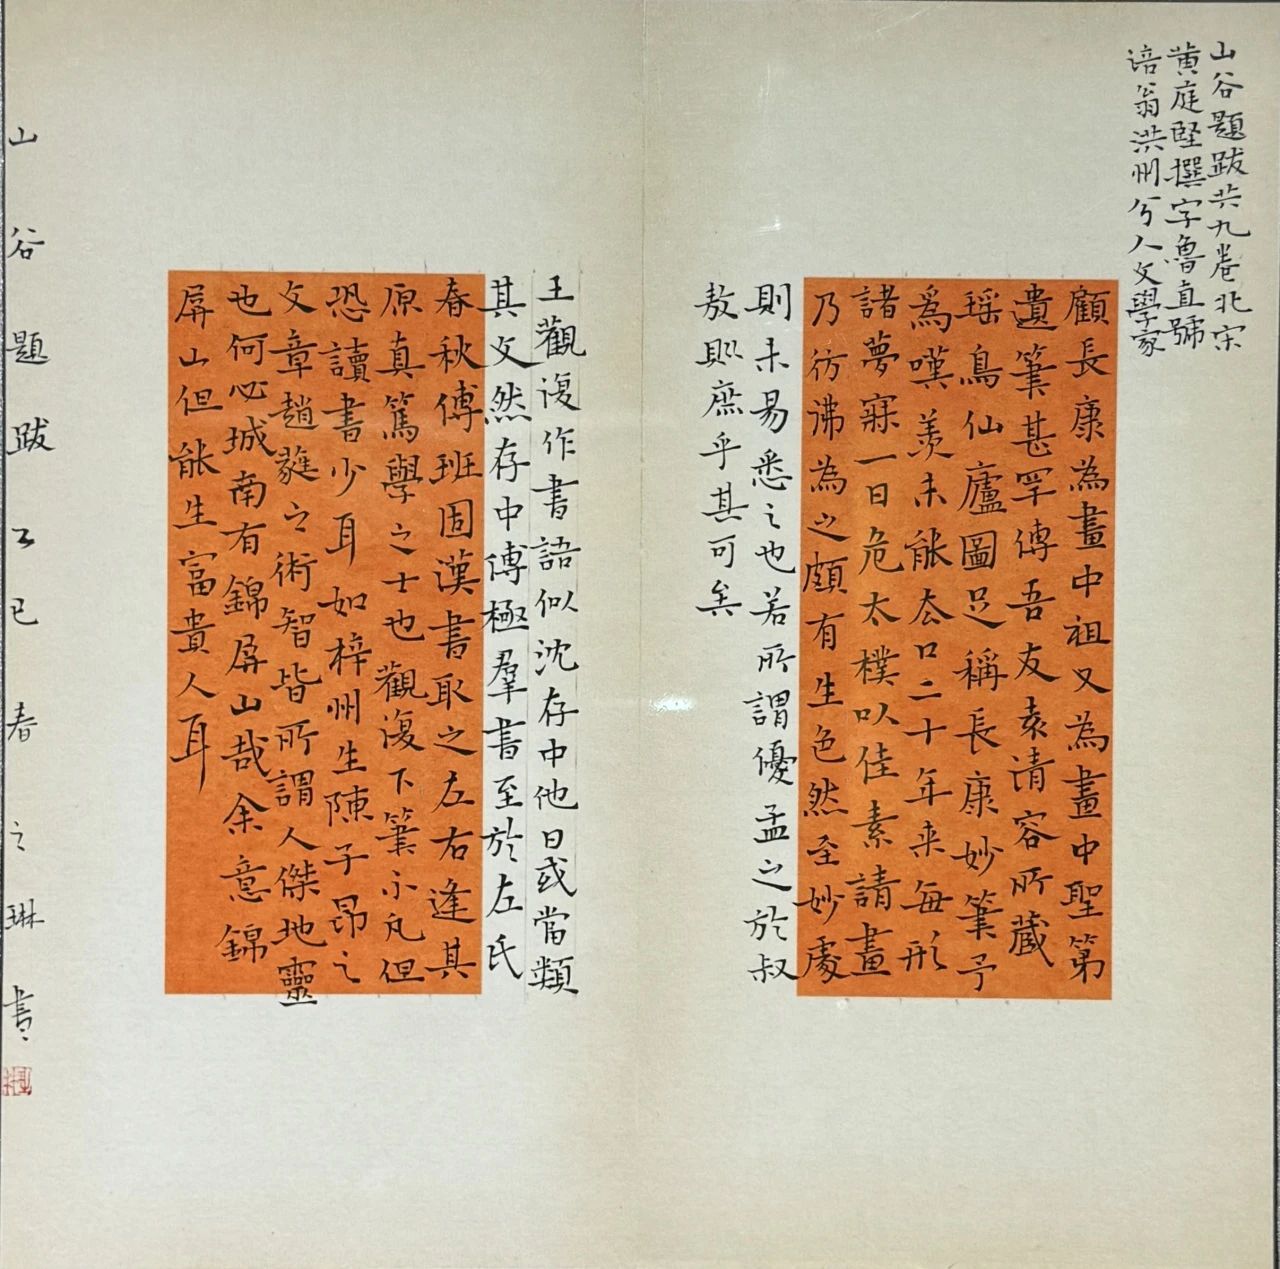 山谷題跋共九卷北宋
黄庭堅撰字魯直號
涪翁洪州分人文學家
顧長康為畫中祖又為畫中聖第
遺筆甚罕傳吾友袁清容所藏
瑶鳥仙廬圖足稱長康妙筆予
爲嘆羡未能忝口二十年来每形
諸夢寐一日危太樸以佳素請畫
乃彷彿為之頗有生色然至妙處
則未易悉之也若所謂優孟之於叔
敖耶庶乎其可矣
王觀復作書語似沈存中他日或當類
其文然存中博極羣書至於左氏
春秋傳班固漢書取之左右逢其
原真篤學之士也觀復下筆不凡但
恐讀書少耳如梓州生陳子昂之
文章趙蕤之術智皆所謂人傑地靈
也何必城南有錦屏山哉余意錦
屏山但能生富貴人耳
山谷題跋乙巳春之琳書